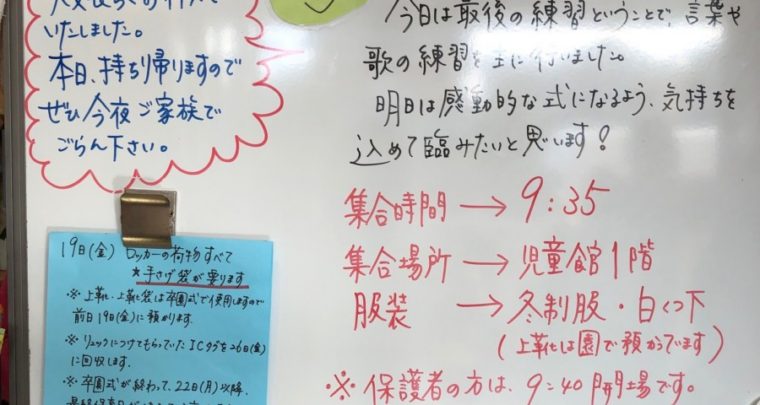 いたしました。
本日、持ち帰りますので
ぜひ今夜ご家族で
ごらん下さい。
今日は最後の練習ということで、言葉や
歌の練習を主に行いました。
明日は感動的な式になるよう、気持ちを
込めて臨みたいと思います！
集合時間 → 9:35
集合場所 → 児童館1階
服装 → 冬制服・白くつ下
(上靴は園で預かっています)
※ 保護者の方は、9:40開場です。
19日(金) ロッカーの荷物すべて
★手さげ袋が要ります
※ 上靴・上靴袋は卒園式で使用しますので
前日19日(金)に預かります。
※ リュックにつけてもらっていたICタグを26日(金)
に回収します。
※ 卒園式が終わって、22日(月)以降、